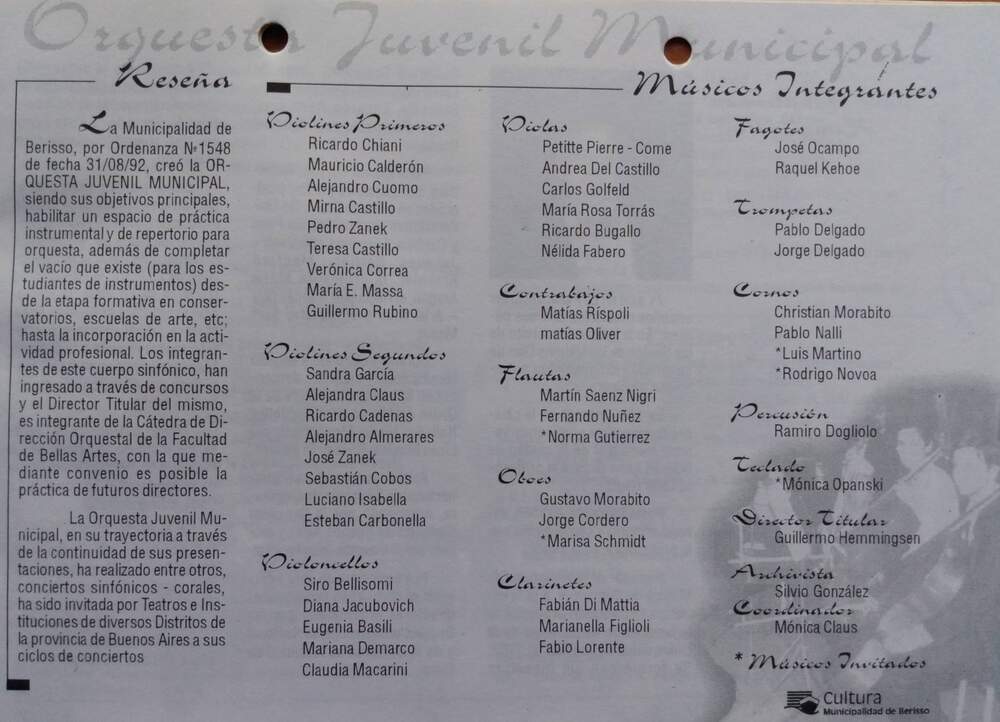 Orquesta Juvenil Municipal
Reseña
La Municipalidad de
Berisso, por Ordenanza Nº1548
de fecha 31/08/92, creó la OR-
QUESTA JUVENIL MUNICIPAL,
siendo sus objetivos principales,
habilitar un espacio de práctica
instrumental y de repertorio para
orquesta, además de completar
el vacío que existe (para los es-
tudiantes de instrumentos) des-
de la etapa formativa en conser-
vatorios, escuelas de arte, etc;
hasta la incorporación en la acti-
vidad profesional. Los integran-
tes de este cuerpo sinfónico, han
ingresado a través de concursos
y el Director Titular del mismo,
es integrante de la Cátedra de Di-
rección Orquestal de la Facultad
de Bellas Artes, con la que me-
diante convenio es posible la
práctica de futuros directores.
La Orquesta Juvenil Mu-
nicipal, en su trayectoria a través
de la continuidad de sus presen-
taciones, ha realizado entre otros,
conciertos sinfónicos - corales,
ha sido invitada por Teatros e Ins-
tituciones de diversos Distritos de
la provincia de Buenos Aires a sus
ciclos de conciertos
Músicos Integrantes
Violines Primeros
Ricardo Chiani
Mauricio Calderón
Alejandro Cuomo
Mirna Castillo
Pedro Zanek
Teresa Castillo
Verónica Correa
María E. Massa
Guillermo Rubino
Violines Segundos
Sandra García
Alejandra Claus
Ricardo Cadenas
Alejandro Almerares
José Zanek
Sebastián Cobos
Luciano Isabella
Esteban Carbonella
Violoncellos
Siro Bellisomi
Diana Jacubovich
Eugenia Basili
Mariana Demarco
Claudia Macarini
Violas
Petitte Pierre - Come
Andrea Del Castillo
Carlos Golfeld
María Rosa Torrás
Ricardo Bugallo
Nélida Fabero
Contrabajos
Matías Ríspoli
matías Oliver
Flautas
Martín Saenz Nigri
Fernando Nuñez
*Norma Gutierrez
Oboes
Gustavo Morabito
Jorge Cordero
*Marisa Schmidt
Clarinetes
Fabián Di Mattia
Marianella Figlioli
Fabio Lorente
Fagotes
José Ocampo
Raquel Kehoe
Trompetas
Pablo Delgado
Jorge Delgado
Cornos
Christian Morabito
Pablo Nalli
*Luis Martino
*Rodrigo Novoa
Percusión
Ramiro Dogliolo
Teclado
*Mónica Opanski
Director Titular
Guillermo Hemmingsen
Archivista
Silvio González
Coordinador
Mónica Claus
* Músicos Invitados
Cultura
Municipalidad de Berisso